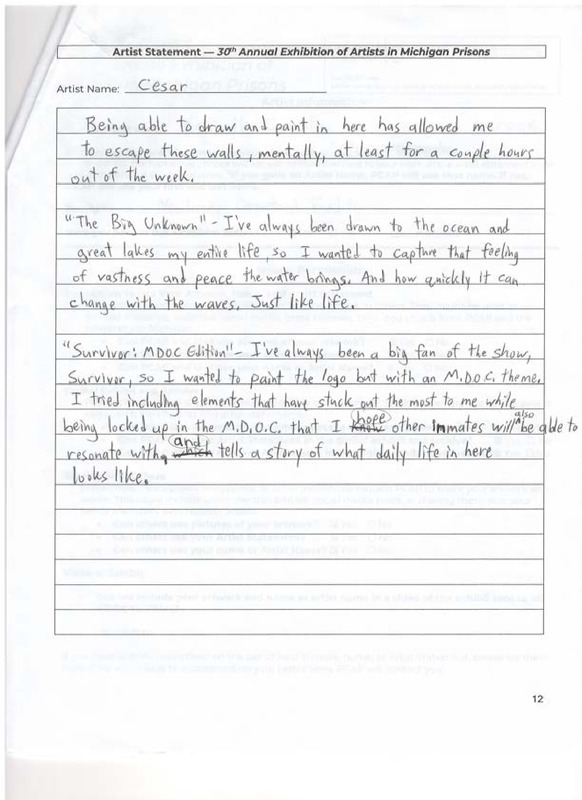 Artist Statement — 30th Annual Exhibition of Artists in Michigan Prisons
Artist Name: Cesar
Being able to draw and paint in here has allowed me
to escape these walls, mentally, at least for a couple hours
out of the week.
"The Big Unknown" - I've always been drawn to the ocean and
great lakes my entire life, so I wanted to capture that feeling
of vastness and peace the water brings. And how quickly it can
change with the waves. Just like life.
"Survivor: MDOC Edition" - I've always been a big fan of the show,
Survivor, so I wanted to paint the logo but with an M.D.O.C. theme.
I tried including elements that have stuck out the most to me while
being locked up in the M.D.O.C. that I hope other inmates will also be able to
resonate with, and tells a story of what daily life in here
looks like.
12